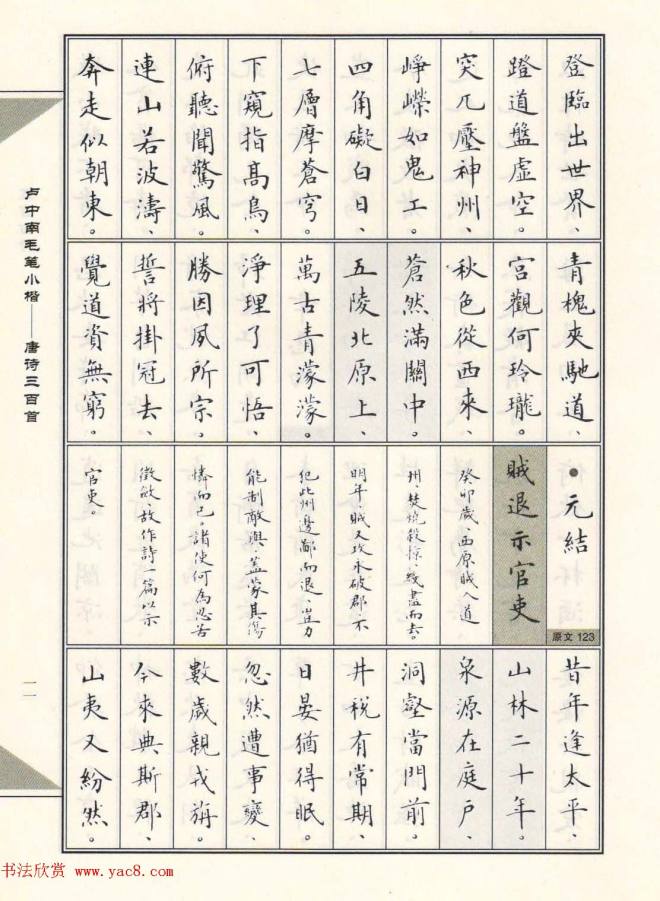 登臨出世界、
蹬道盤虛空。
突兀壓神州、
崢嶸如鬼工。
四角礙白日、
七層摩蒼穹。
下窺指高鳥、
俯聽聞驚風。
連山若波濤、
奔走似朝東。
青槐夾馳道、
宮觀何玲瓏。
秋色從西來、
蒼然滿關中。
五陵北原上、
萬古青濛濛。
淨理了可悟、
勝因夙所宗。
誓將掛冠去、
覺道資無窮。
●元結
賊退示官吏
原文 123
癸卯歲、西原賊入道
州、焚燒殺掠、幾盡而去。
明年、賊又攻永破郡、不
犯此州邊鄙而退、豈力
能制敵與、蓋蒙其傷
憐而已。諸使何為忍苦
徵斂、故作詩一篇以示
官吏。
昔年逢太平、
山林二十年。
泉源在庭戶、
洞壑當門前。
井稅有常期、
日晏猶得眠。
忽然遭事變、
數歲親戎旃。
今來典斯郡、
山夷又紛然。
卢中南毛笔小楷——唐诗三百首
一一
书法欣赏 www.yac8.com